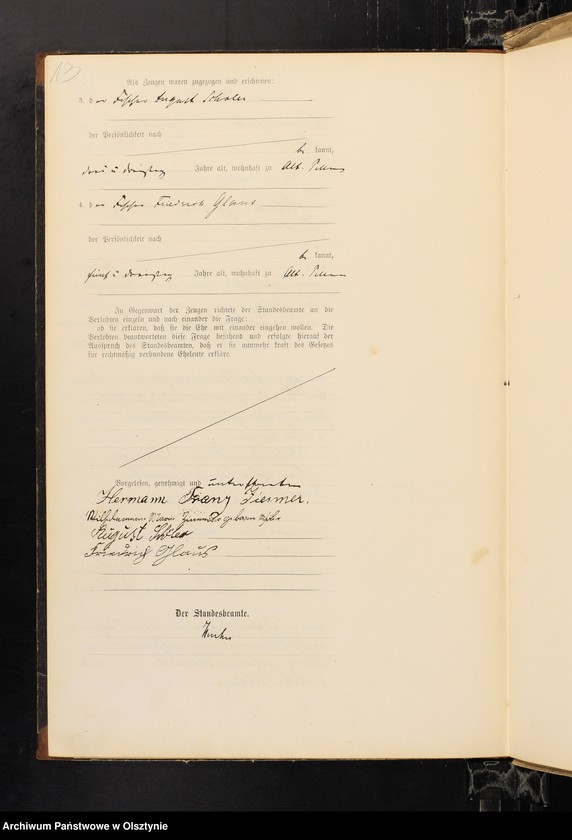 13
Als Zeugen waren zugezogen und erschienen:
3. der Fischer August Scholer
der Persönlichkeit nach
be kannt,
drei u dreißig Jahre alt, wohnhaft zu Alt-
4. der Fischer Friedrich Glaus
der Persönlichkeit nach
be kannt,
fünf u dreißig Jahre alt, wohnhaft zu Alt-
In Gegenwart der Zeugen richtete der Standesbeamte an die
Verlobten einzeln und nach einander die Frage:
ob sie erklären, daß sie die Ehe mit einander eingehen wollen. Die
Verlobten beantworteten diese Frage bejahend und erfolgte hierauf der
Ausspruch des Standesbeamten, daß er sie nunmehr kraft des Gesetzes
für rechtmäßig verbundene Eheleute erkläre.
Vorgelesen, genehmigt und unterschrieben
Hermann Franz Ziemer.
Wilhelmine Marie geborne
August
Friedrich Glaus
Der Standesbeamte.
Archiwum Państwowe w Olsztynie